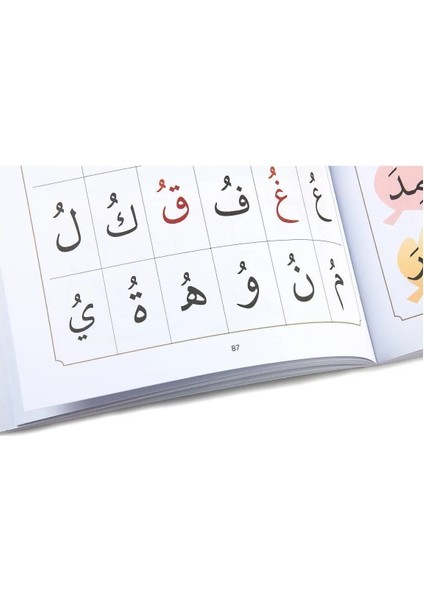 عُ غُ فُ قُ كُ لُ
مُ نُ وُ هُ ةُ يُ
87
مِدَ
رَ